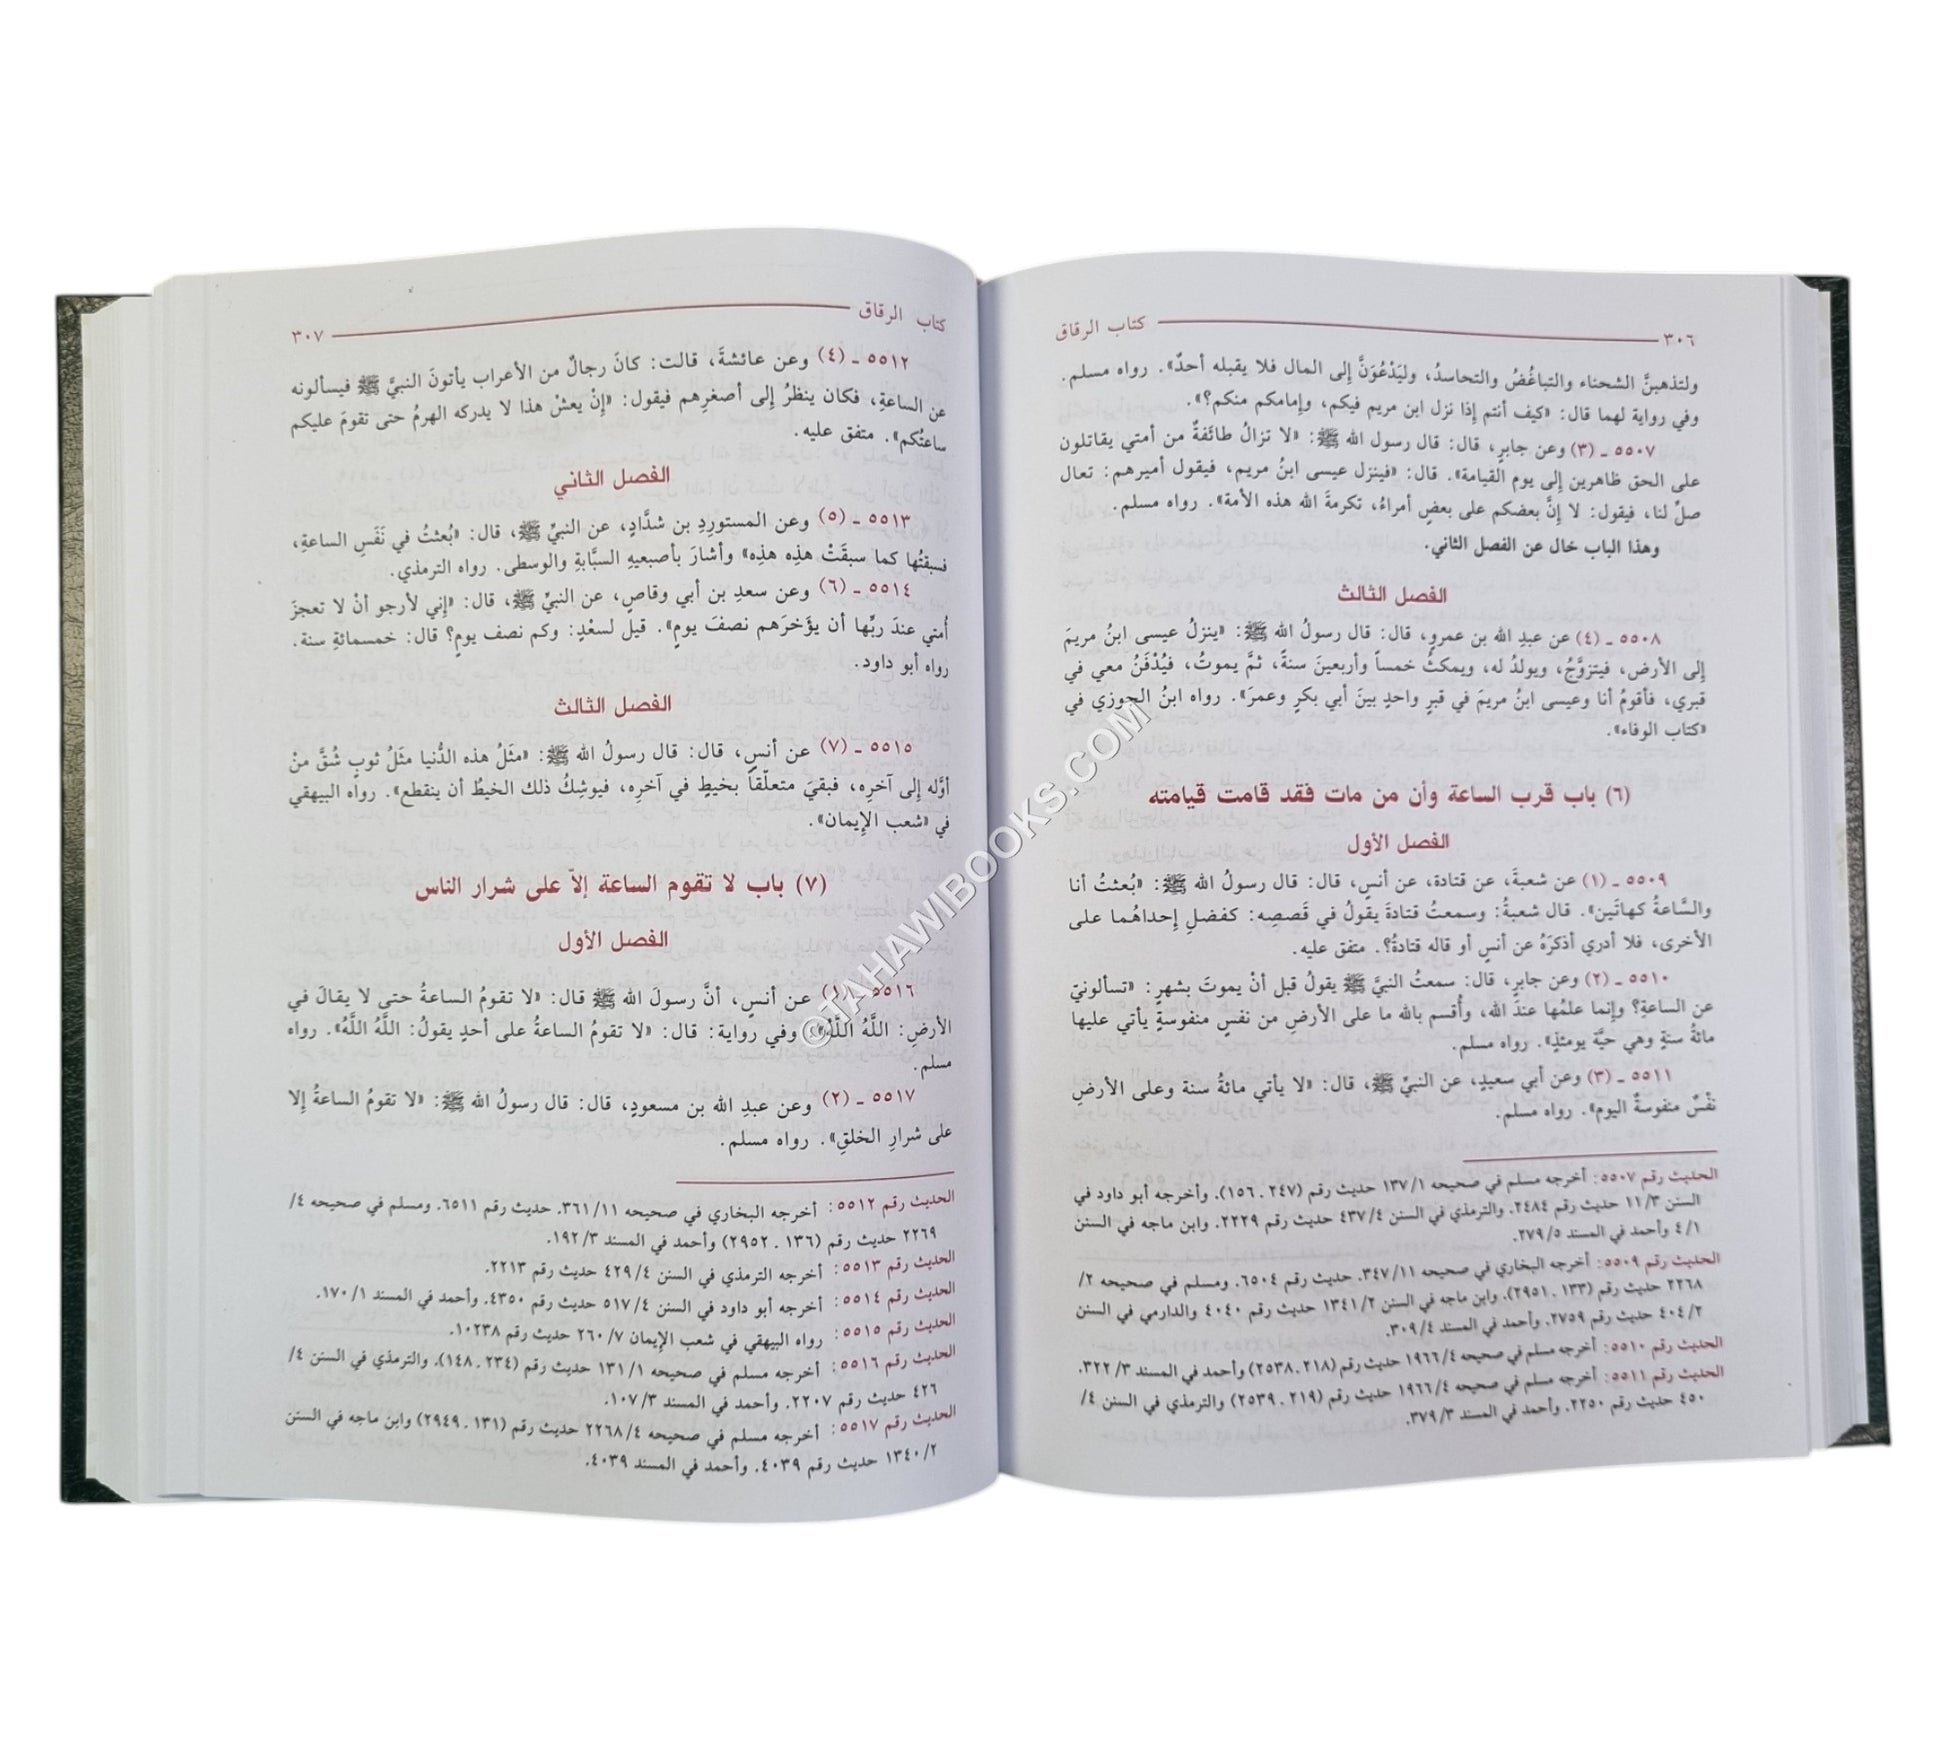 ٣٠٦ كتاب الرقاق
ولتذهبنَّ الشحناء والتباغُضُ والتحاسدُ، وليَدْعُوَنَّ إلى المال فلا يقبله أحدٌ». رواه مسلم.
وفي رواية لهما قال: «كيف أنتم إذا نزل ابن مريم فيكم، وإمامكم منكم؟».
٥٥٠٧ ـ (٣) وعن جابرٍ، قال: قال رسول الله ﷺ: «لا تزالُ طائفةٌ من أمتي يقاتلون
على الحق ظاهرين إلى يوم القيامة». قال: «فينزل عيسى ابنُ مريم، فيقول أميرهم: تعال
صلِّ لنا، فيقول: لا إنَّ بعضكم على بعضٍ أمراءُ، تكرمةَ الله هذه الأمة». رواه مسلم.
وهذا الباب خال عن الفصل الثاني.
الفصل الثالث
٥٥٠٨ ـ (٤) عن عبدِ الله بن عمرٍو، قال: قال رسولُ الله ﷺ: «ينزلُ عيسى ابنُ مريمَ
إلى الأرض، فيتزوَّجُ، ويولدُ له، ويمكثُ خمساً وأربعينَ سنةً، ثمَّ يموتُ، فيُدْفَنُ معي في
قبري، فأقومُ أنا وعيسى ابنُ مريمَ في قبرٍ واحدٍ بينَ أبي بكرٍ وعمرَ». رواه ابنُ الجوزي في
«كتاب الوفاء».
(٦) باب قرب الساعة وأن من مات فقد قامت قيامته
الفصل الأول
٥٥٠٩ ـ (١) عن شعبةَ، عن قتادة، عن أنسٍ، قال: قال رسولُ الله ﷺ: «بُعثتُ أنا
والسَّاعةُ كهاتَين». قال شعبةُ: وسمعتُ قتادةَ يقولُ في قَصصِه: كفضلِ إحداهُما على
الأخرى، فلا أدري أذكرَهُ عن أنسٍ أو قاله قتادةُ؟. متفق عليه.
٥٥١٠ ـ (٢) وعن جابرٍ، قال: سمعتُ النبيَّ ﷺ يقولُ قبل أنْ يموتَ بشهرٍ: «تسألونيِّ
عن الساعةِ؟ وإنما علمُها عندَ الله، وأُقسم بالله ما على الأرضِ من نفسٍ منفوسةٍ يأتي عليها
مائةُ سنةٍ وهي حيَّة يومئذٍ». رواه مسلم.
٥٥١١ ـ (٣) وعن أبي سعيدٍ، عن النبيِّ ﷺ، قال: «لا يأتي مائةُ سنة وعلى الأرضِ
نفْسٌ منفوسةٌ اليوم». رواه مسلم.
الحديث رقم ٥٥٠٧: أخرجه مسلم في صحيحه ١٣٧/١ حديث رقم (٢٤٧ . ١٥٦). وأخرجه أبو داود في
السنن ١١/٣ حديث رقم ٢٤٨٤. والترمذي في السنن ٤٣٧/٤ حديث رقم ٢٢٢٩. وابن ماجه في السنن
٤/١ وأحمد في المسند ٢٧٩/٥.
الحديث رقم ٥٥٠٩: أخرجه البخاري في صحيحه ٣٤٧/١١. حديث رقم ٦٥٠٤. ومسلم في صحيحه ٢/
٢٢٦٨ حديث رقم (١٣٣ . ٢٩٥١). وابن ماجه في السنن ١٣٤١/٢ حديث رقم ٤٠٤٠ والدارمي في السنن
٤٠٤/٢ حديث رقم ٢٧٥٩. وأحمد في المسند ٣٠٩/٤.
الحديث رقم ٥٥١٠: أخرجه مسلم في صحيحه ١٩٦٦/٤ حديث رقم (٢١٨ . ٢٥٣٨) وأحمد في المسند ٣٢٢/٣.
الحديث رقم ٥٥١١: أخرجه مسلم في صحيحه ١٩٦٦/٤ حديث رقم (٢١٩ . ٢٥٣٩) والترمذي في السنن ٤/
٤٥٠ حديث رقم ٢٢٥٠. وأحمد في المسند ٣٧٩/٣.
كتاب الرقاق ٣٠٧
٥٥١٢ ـ (٤) وعن عائشةَ، قالت: كانَ رجالٌ من الأعراب يأتونَ النبيَّ ﷺ فيسألونه
عن الساعةِ، فكان ينظرُ إلى أصغرِهم فيقول: «إنْ يعشْ هذا لا يدركه الهرمُ حتى تقومَ عليكم
ساعتُكم». متفق عليه.
الفصل الثاني
٥٥١٣ ـ (٥) وعن المستورِدِ بن شدَّادٍ، عن النبيِّ ﷺ، قال: «بُعثتُ في نَفَسِ الساعةِ،
فسبقتُها كما سبقَتْ هذِه هذِه» وأشارَ بأصبعيهِ السبَّابةِ والوسطى. رواه الترمذي.
٥٥١٤ ـ (٦) وعن سعدِ بن أبي وقاصٍ، عن النبيِّ ﷺ، قال: «إني لأرجو أنْ لا تعجزَ
أُمتي عندَ ربِّها أن يؤَخرَهم نصفَ يومٍ». قيل لسعْدٍ: وكم نصف يوم؟ قال: خمسمائةِ سنة.
رواه أبو داود.
الفصل الثالث
٥٥١٥ ـ (٧) عن أنسٍ، قال: قال رسولُ الله ﷺ: «مثَلُ هذه الدُّنيا مثَلُ ثوبٍ شُقَّ منْ
أوَّله إلى آخرِه، فبقيَ متعلّقاً بخيطٍ في آخرِه، فيوشِكُ ذلك الخيطُ أن ينقطع». رواه البيهقي
في «شعب الإيمان».
(٧) باب لا تقوم الساعة إلاّ على شرار الناس
الفصل الأول
٥٥١٦ ـ (١) عن أنسٍ، أنَّ رسولَ الله ﷺ قال: «لا تقومُ الساعةُ حتى لا يقالَ في
الأرضِ: اللَّهُ اللَّهُ». وفي رواية: قال: «لا تقومُ الساعةُ على أحدٍ يقولُ: اللَّهُ اللَّهُ». رواه
مسلم.
٥٥١٧ ـ (٢) وعن عبدِ الله بن مسعودٍ، قال: قال رسولُ الله ﷺ: «لا تقومُ الساعةُ إلا
على شرارِ الخلقِ». رواه مسلم.
الحديث رقم ٥٥١٢: أخرجه البخاري في صحيحه ٣٦١/١١. حديث رقم ٦٥١١. ومسلم في صحيحه ٤/
٢٢٦٩ حديث رقم (١٣٦ . ٢٩٥٢) وأحمد في المسند ١٩٢/٣.
الحديث رقم ٥٥١٣: أخرجه الترمذي في السنن ٤٢٩/٤ حديث رقم ٢٢١٣.
الحديث رقم ٥٥١٤: أخرجه أبو داود في السنن ٥١٧/٤ حديث رقم ٤٣٥٠. وأحمد في المسند ١٧٠/١.
الحديث رقم ٥٥١٥: رواه البيهقي في شعب الإيمان ٢٦٠/٧ حديث رقم ١٠٢٣٨.
الحديث رقم ٥٥١٦: أخرجه مسلم في صحيحه ١٣١/١ حديث رقم (٢٣٤ . ١٤٨). والترمذي في السنن ٤/
٤٢٦ حديث رقم ٢٢٠٧. وأحمد في المسند ١٠٧/٣.
الحديث رقم ٥٥١٧: أخرجه مسلم في صحيحه ٢٢٦٨/٤ حديث رقم (١٣١ . ٢٩٤٩) وابن ماجه في السنن
١٣٤٠/٢ حديث رقم ٤٠٣٩. وأحمد في المسند ٤٠٣٩.
©TAHAWIBOOKS.COM